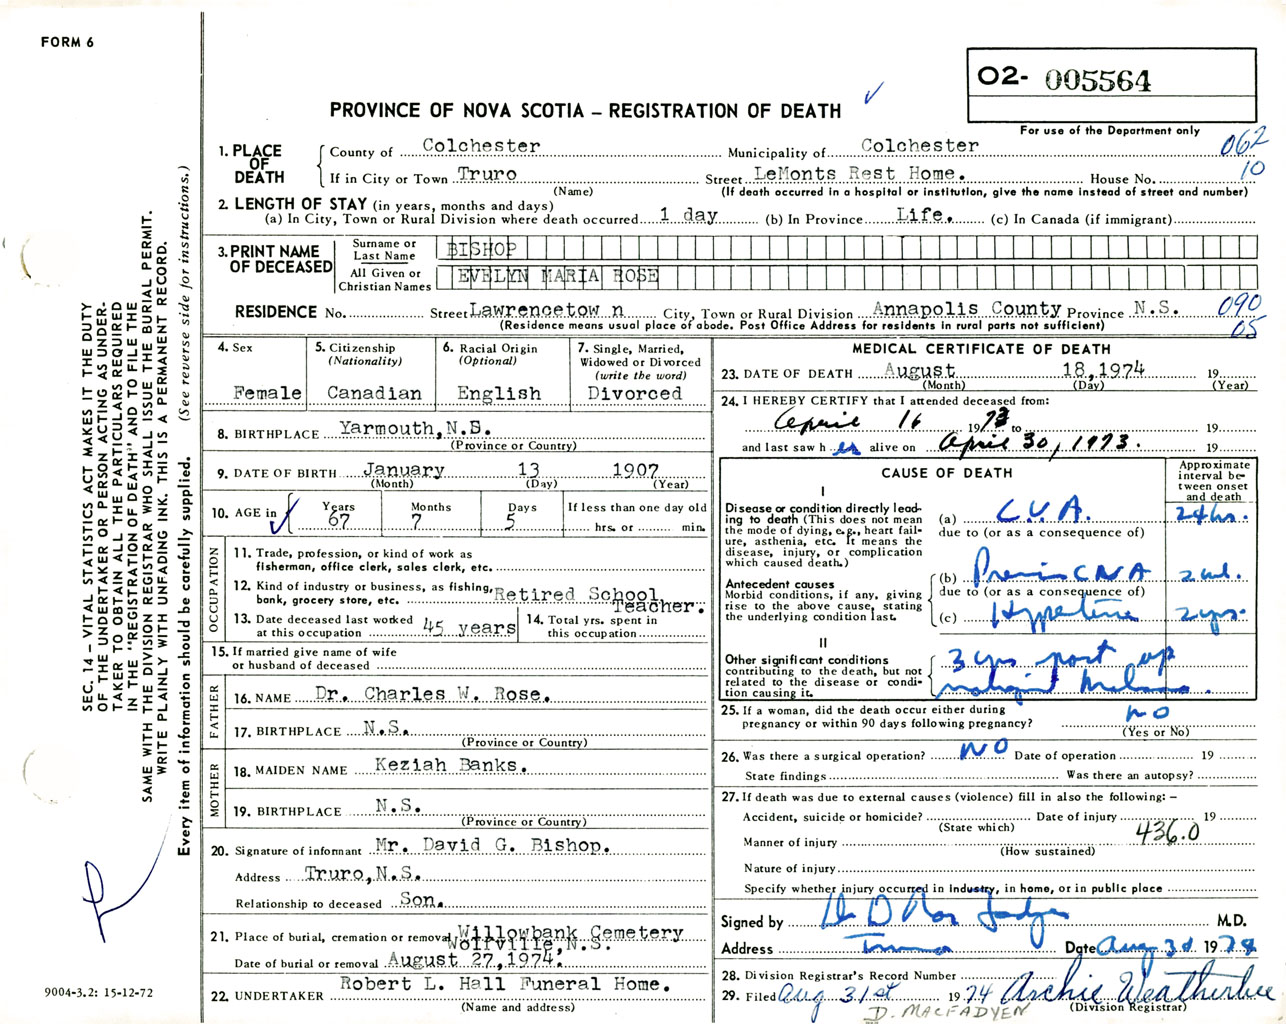 FORM 6
O2- 005564
For use of the Department only
PROVINCE OF NOVA SCOTIA – REGISTRATION OF DEATH
062
10
1. PLACE OF DEATH
County of Colchester Municipality of Colchester
If in City or Town Truro Street LeMonts Rest Home. House No.
(Name) (If death occurred in a hospital or institution, give the name instead of street and number)
2. LENGTH OF STAY (in years, months and days)
(a) In City, Town or Rural Division where death occurred 1 day (b) In Province Life. (c) In Canada (if immigrant)
3. PRINT NAME OF DECEASED
Surname or Last Name BISHOP
All Given or Christian Names EVELYN MARIA ROSE
RESIDENCE No. Street Lawrencetow n City, Town or Rural Division Annapolis County Province N.S. 090
(Residence means usual place of abode. Post Office Address for residents in rural parts not sufficient) 05
4. Sex
Female
5. Citizenship
(Nationality)
Canadian
6. Racial Origin
(Optional)
English
7. Single, Married,
Widowed or Divorced
(write the word)
Divorced
8. BIRTHPLACE Yarmouth,N.S.
(Province or Country)
9. DATE OF BIRTH January 13 1907
(Month) (Day) (Year)
10. AGE in
Years Months Days If less than one day old
67 7 5 hrs. or min.
OCCUPATION
11. Trade, profession, or kind of work as
fisherman, office clerk, sales clerk, etc.
12. Kind of industry or business, as fishing,
bank, grocery store, etc. Retired School
Teacher.
13. Date deceased last worked
at this occupation 45 years
14. Total yrs. spent in
this occupation
15. If married give name of wife
or husband of deceased
FATHER
16. NAME Dr. Charles W. Rose.
17. BIRTHPLACE N.S.
(Province or Country)
MOTHER
18. MAIDEN NAME Keziah Banks.
19. BIRTHPLACE N.S.
(Province or Country)
20. Signature of informant Mr. David G. Bishop.
Address Truro,N.S.
Relationship to deceased Son.
21. Place of burial, cremation or removal Willowbank Cemetery
Wolfville,N.S.
Date of burial or removal August 27,1974.
22. UNDERTAKER Robert L. Hall Funeral Home.
(Name and address)
MEDICAL CERTIFICATE OF DEATH
23. DATE OF DEATH August 18,1974 19
(Month) (Day) (Year)
24. I HEREBY CERTIFY that I attended deceased from:
April 16 1973 to 19
and last saw h er alive on April 30, 1973. 19
CAUSE OF DEATH
Approximate
interval be-
tween onset
and death
I
Disease or condition directly lead-
ing to death (This does not mean
the mode of dying, e.g., heart fail-
ure, asthenia, etc. It means the
disease, injury, or complication
which caused death.)
(a) C.V.A. 24 hrs.
due to (or as a consequence of)
Antecedent causes
Morbid conditions, if any, giving
rise to the above cause, stating
the underlying condition last.
(b) Previous CVA
due to (or as a consequence of)
(c) 2 yrs.
II
Other significant conditions
contributing to the death, but not
related to the disease or condi-
tion causing it.
3 yrs post op
25. If a woman, did the death occur either during
pregnancy or within 90 days following pregnancy? NO
(Yes or No)
26. Was there a surgical operation? NO Date of operation 19
State findings Was there an autopsy?
27. If death was due to external causes (violence) fill in also the following: –
Accident, suicide or homicide? Date of injury 19
(State which)
436.0
Manner of injury
(How sustained)
Nature of injury
Specify whether injury occurred in industry, in home, or in public place
Signed by M.D.
Address Truro Date Aug 30 1974
28. Division Registrar's Record Number
29. Filed Aug 31st 1974 Archie Weatherbee
(Division Registrar)
D. MACFADYEN
SEC. 14 – VITAL STATISTICS ACT MAKES IT THE DUTY
OF THE UNDERTAKER OR PERSON ACTING AS UNDER-
TAKER TO OBTAIN ALL THE PARTICULARS REQUIRED
IN THE "REGISTRATION OF DEATH" AND TO FILE THE
SAME WITH THE DIVISION REGISTRAR WHO SHALL ISSUE THE BURIAL PERMIT.
WRITE PLAINLY WITH UNFADING INK. THIS IS A PERMANENT RECORD.
Every item of information should be carefully supplied. (See reverse side for instructions.)
9004-3.2: 15-12-72